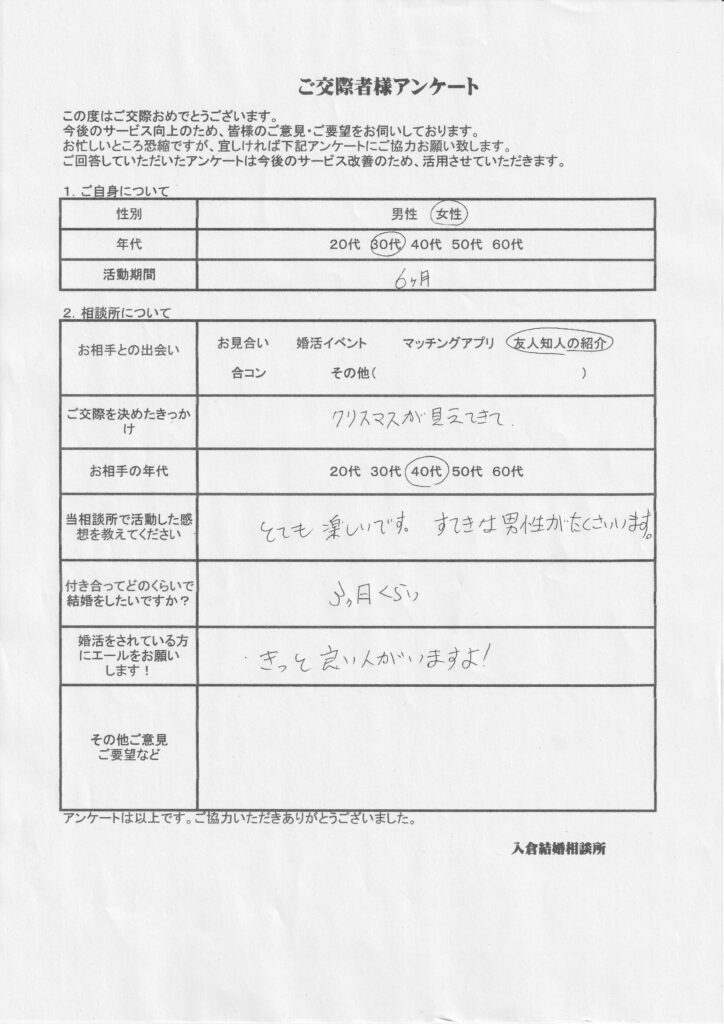 ご交際者様アンケート
この度はご交際おめでとうございます。
今後のサービス向上のため、皆様のご意見・ご要望をお伺いしております。
お忙しいところ恐縮ですが、宜しければ下記アンケートにご協力お願い致します。
ご回答していただいたアンケートは今後のサービス改善のため、活用させていただきます。
1. ご自身について
性別 男性 女性
年代 20代 30代 40代 50代 60代
活動期間 6ヶ月
2. 相談所について
お相手との出会い お見合い 婚活イベント マッチングアプリ 友人知人の紹介
合コン その他( )
ご交際を決めたきっか
け
クリスマスが見えてきて.
お相手の年代 20代 30代 40代 50代 60代
当相談所で活動した感
想を教えてください
とても楽しいです。 すてきな男性がたくさんいます。
付き合ってどのくらいで
結婚をしたいですか？
3ヶ月くらい
婚活をされている方
にエールをお願い
します！
きっと良い人がいますよ!
その他ご意見
ご要望など
アンケートは以上です。ご協力いただきありがとうございました。
入倉結婚相談所